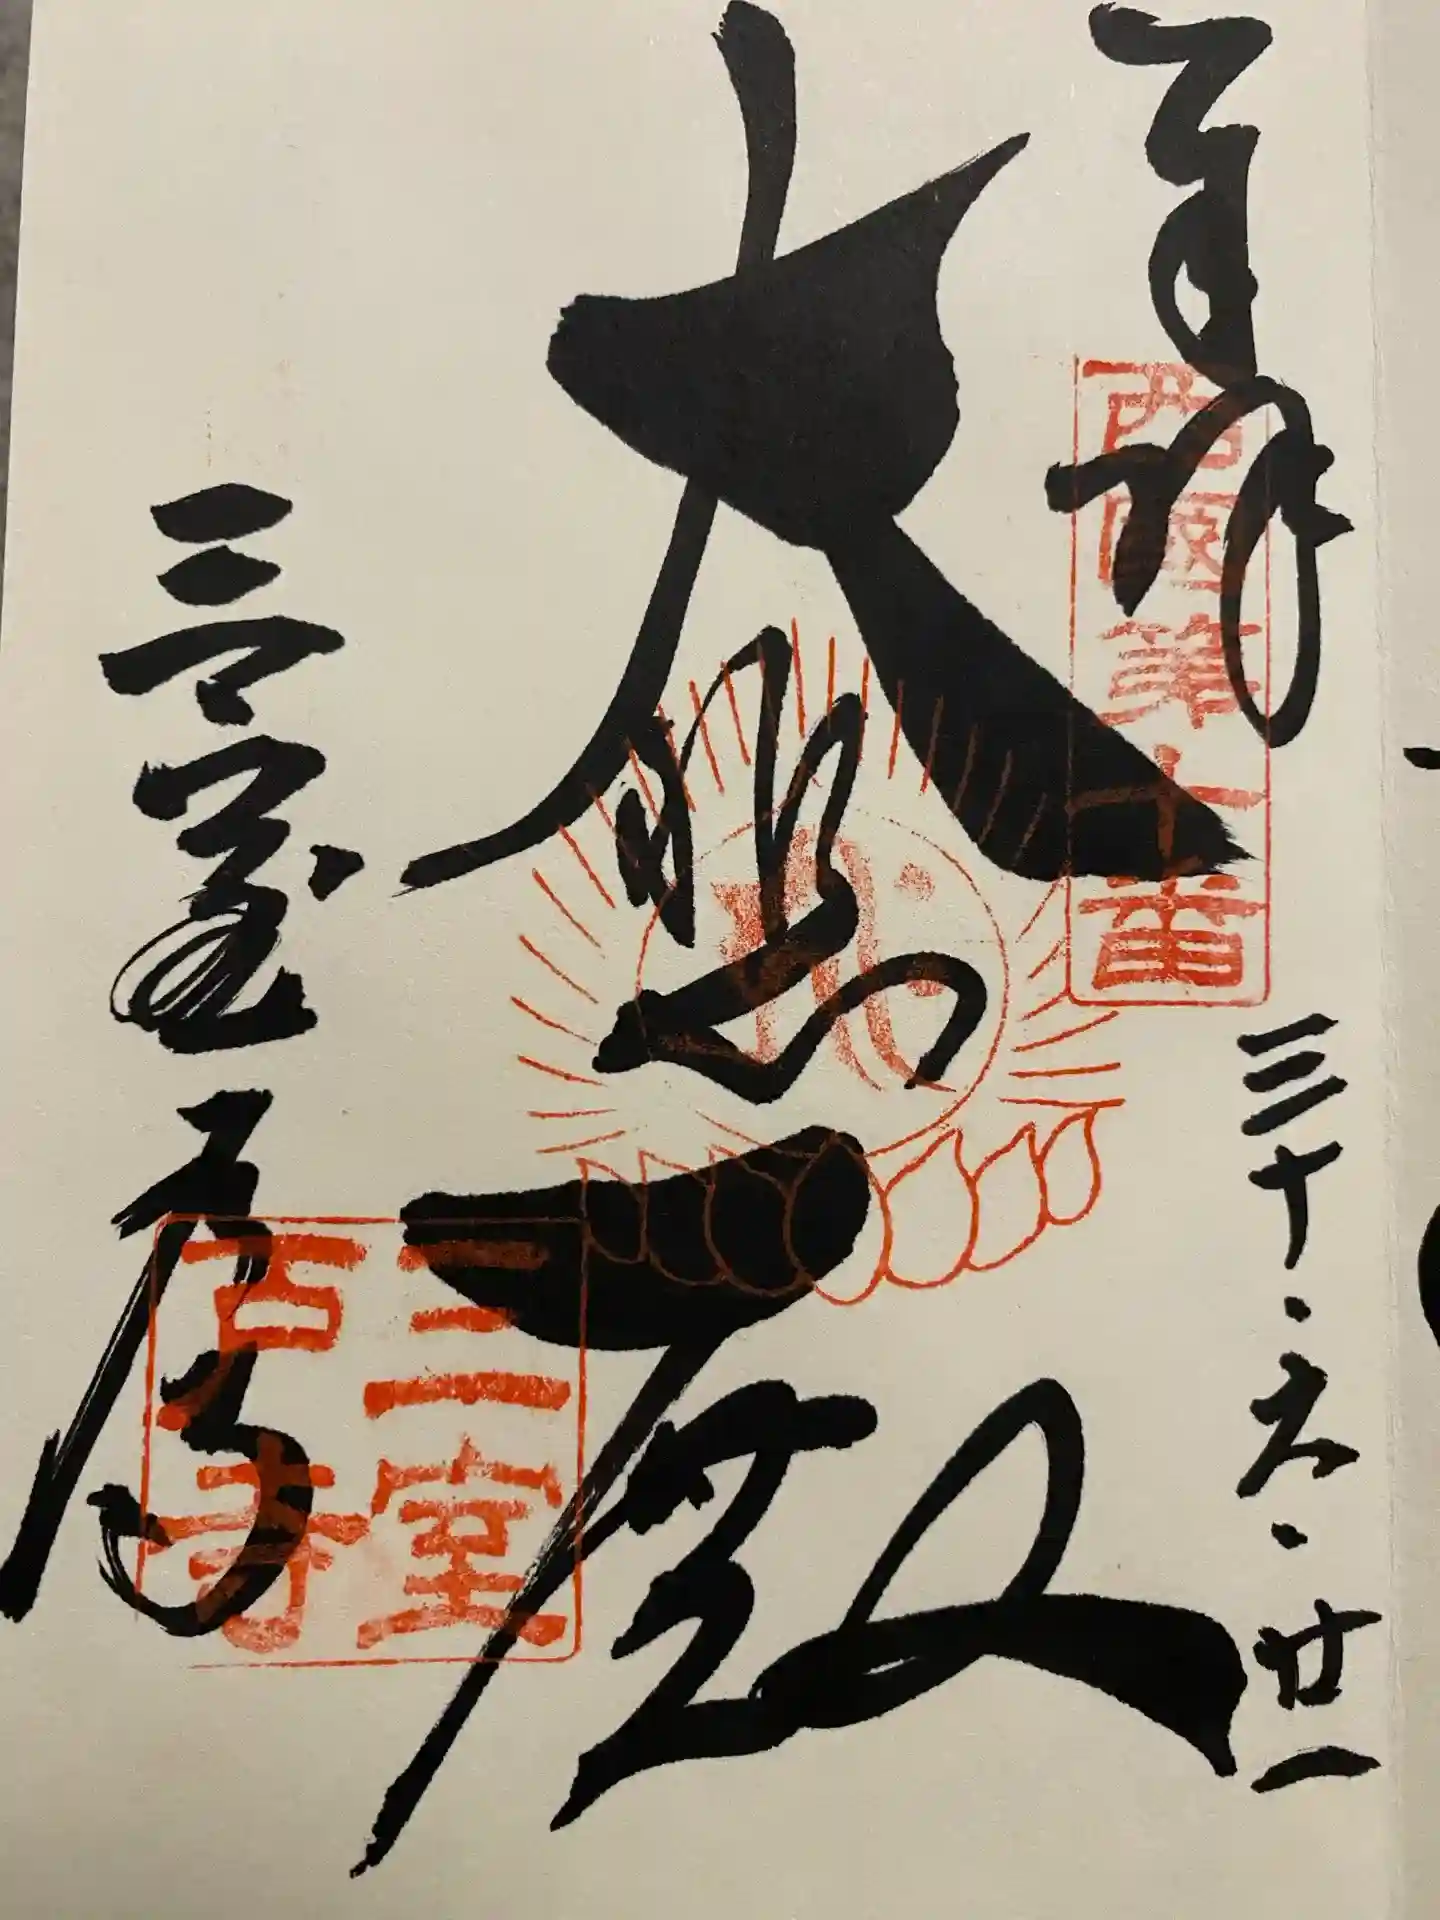 奉拝
西国第十番
三十・六・廿一
大悲殿
三室戸寺
三室
戸寺